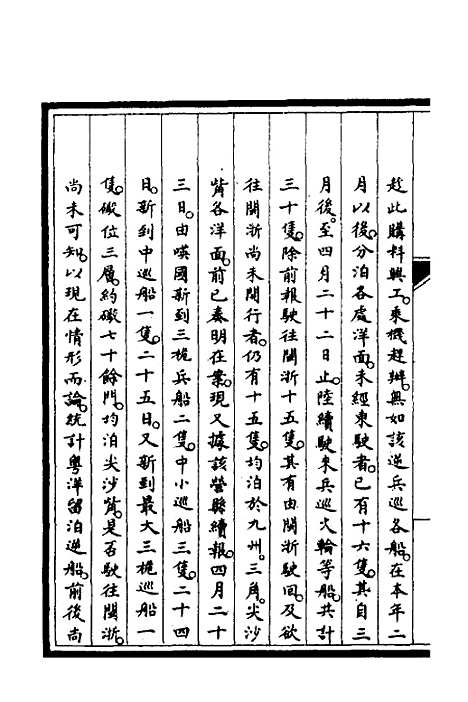 趁此購料興工。乘機趕辦。無如該逆兵巡各船。在本年二
月以後。分泊各處洋面。未經東駛者。已有十六隻。其自三
月後。至四月二十二日止。陸續駛來兵巡火輪等船。共計
三十隻。除前報駛往閩浙十五隻。其有由閩浙駛回。及欲
往閩浙尚未開行者。仍有十五隻。均泊於九州。三角。尖沙
觜各洋面。前已奏明在案。現又據該營縣續報。四月二十
三日。由𠸄國新到三桅兵船二隻。中小巡船三隻。二十四
日。新到中巡船一隻。二十五日。又新到最大三桅巡船一
隻。礮位三層。約礮七十餘門。均泊尖沙觜。是否駛往閩浙。
尚未可知。以現在情形而論。統計粵洋留泊逆船。前後尚